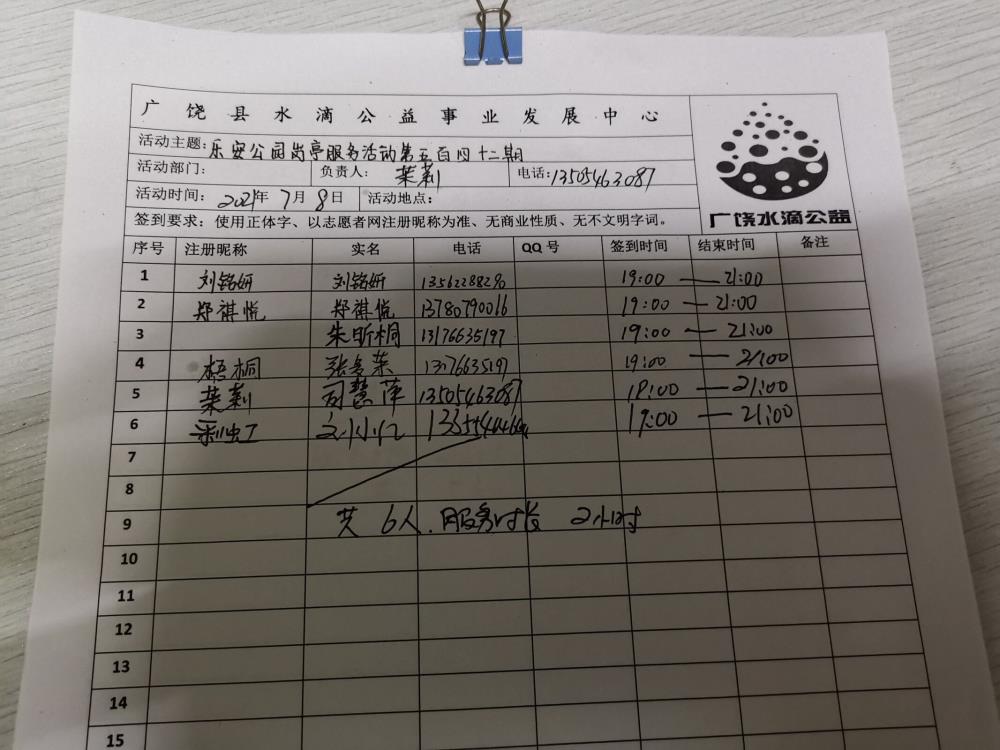 广饶县水滴公益事业发展中心
活动主题:乐安公园岗亭服务活动第五百四十二期
活动部门: 负责人: 茉莉 电话:13505463087
活动时间: 2021年7月8日 活动地点:
签到要求:使用正体字、以志愿者网注册昵称为准、无商业性质、无不文明字词。
广饶水滴公益
序号 注册昵称 实名 电话 QQ号 签到时间 结束时间 备注
1 刘铭妍 刘铭妍 19:00 — 21:00
2 郑祺悦 郑祺悦 13780790016 19:00 — 21:00
3 朱昕桐 13176635197 19:00 — 21:00
4 梧桐 13176635197 19:00 — 21:00
5 茉莉 司慧萍 13505463087 19:00 — 21:00
6 19:00 — 21:00
7
8
9 共6人.服务时长 2小时
10
11
12
13
14
15